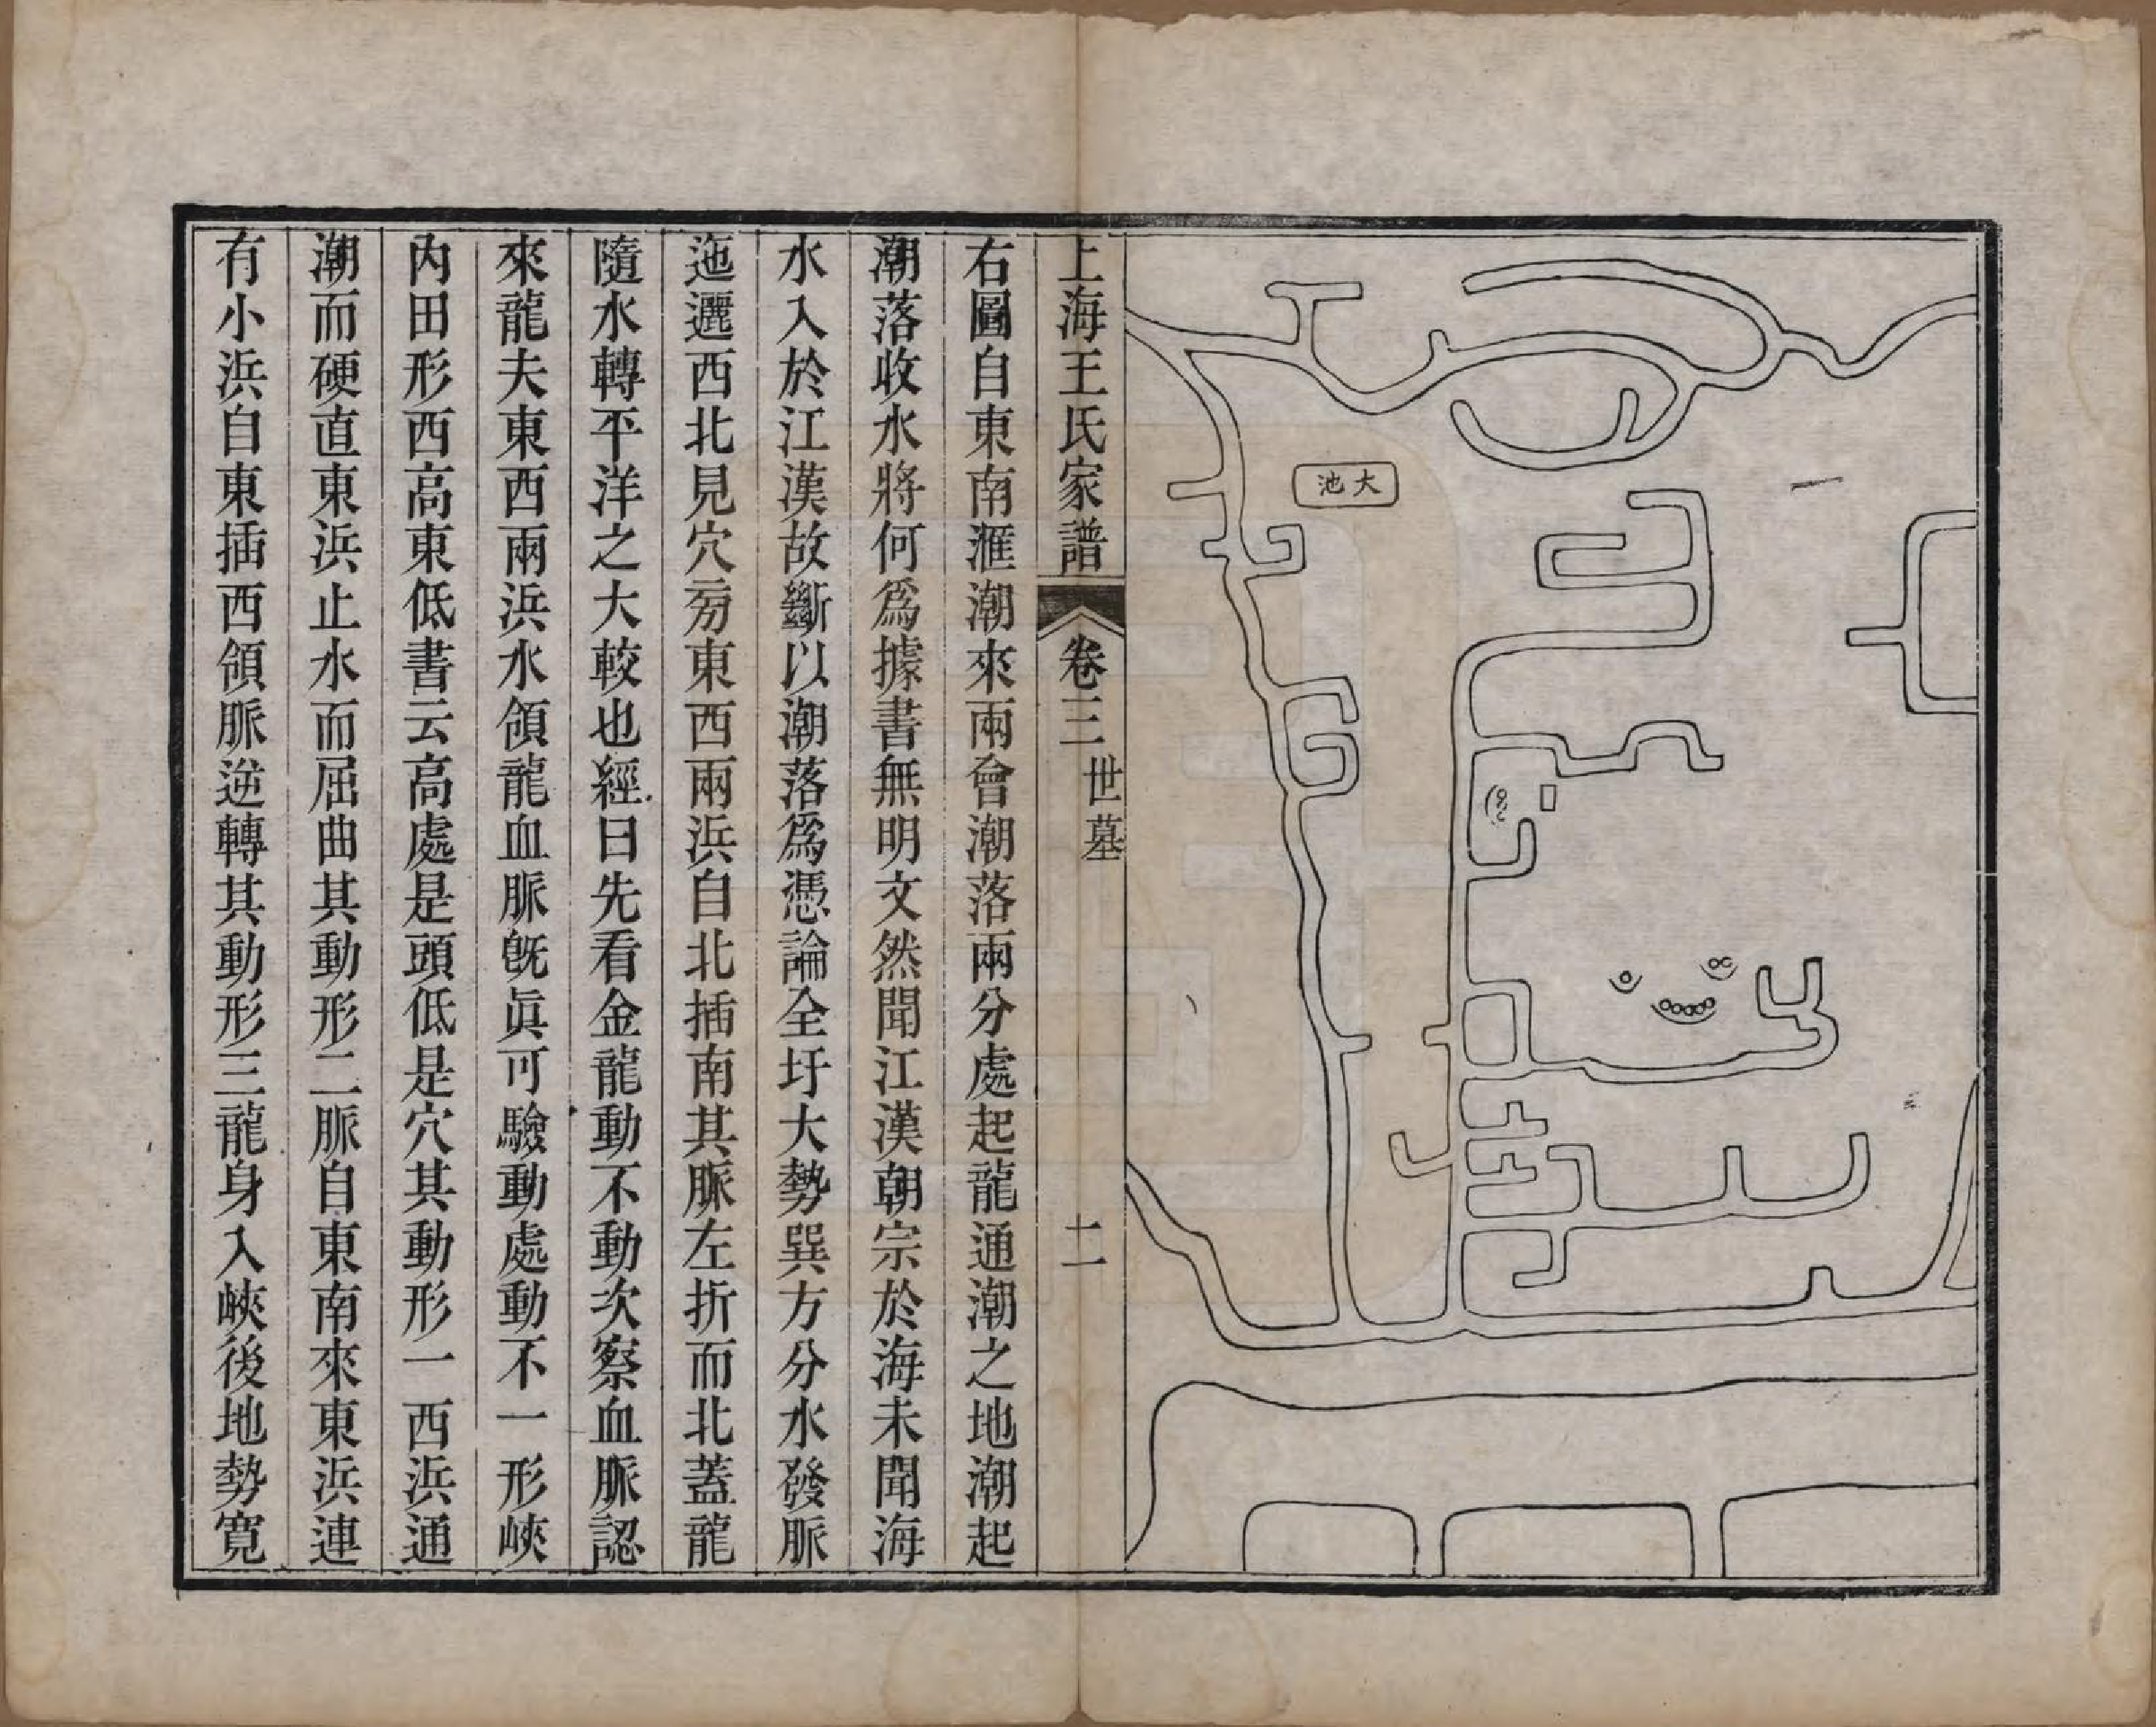 大池
上海王氏家譜 卷三 世墓 十一
右圖自東南滙潮來兩會潮落兩分處起龍通潮之地潮起
潮落收水將何爲據書無明文然聞江漢朝宗於海未聞海
水入於江漢故斷以潮落爲憑論全圩大勢巽方分水發脈
迤邐西北見穴旁東西兩浜自北插南其脈左折而北蓋龍
隨水轉平洋之大較也經曰先看金龍動不動次察血脈認
來龍夫東西兩浜水領龍血脈旣眞可驗動處動不一形峽
內田形西高東低書云高處是頭低是穴其動形一西浜通
潮而硬直東浜止水而屈曲其動形二脈自東南來東浜連
有小浜自東插西領脈逆轉其動形三龍身入峽後地勢寬